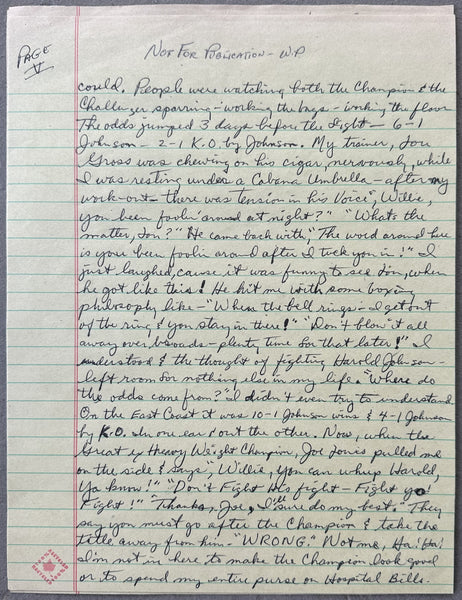 PAGE
V
NOT FOR PUBLICATION - W.P
could. People were watching both the Champion & the
Challenger sparring - working the bags - working the floor
The odds jumped 3 days before the fight - 6-1
Johnson - 2-1 K.O. by Johnson. My trainer, Jon
Gross was chewing on his cigar, nervously, while
I was resting under a Cabana Umbrella - after my
work-out - there was tension in his Voice", Willie,
you been foolin' around at night?" "What's the
matter, Jon?" He came back with, "The word around here
is you're been foolin around after I tuck you in!" I
just laughed, cause it was funny to see Jon, when
he got like this! He hit me with some boxing
philosophy like - "When the bell rings - I get out
of the ring & you stay in there!" "Don't blow it all
away over broads - plenty time for that later!" I
understood & the thought of fighting Harold Johnson -
left room for nothing else in my life. "Where do
the odds come from?" I didn't even try to understand
On the East Coast it was 10-1 Johnson wins & 4-1 Johnson
by K.O. In one ear & out the other. Now, when the
Great Heavy Weight Champion, Joe Louis pulled me
on the side & says, "Willie, you can whup Harold,
Ya know!" "Don't Fight His fight - Fight yo
Fight!" "Thanks, Joe, I'll sure do my best." They
say you must go after the Champion & take the
title away from him - "WRONG." Not me, Ha! Ha!
I'm not in here, to make the Champion look good
or to spend my entire purse on Hospital Bills.